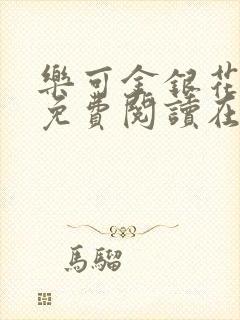 樂可金銀花
免費閱讀在
馬騮